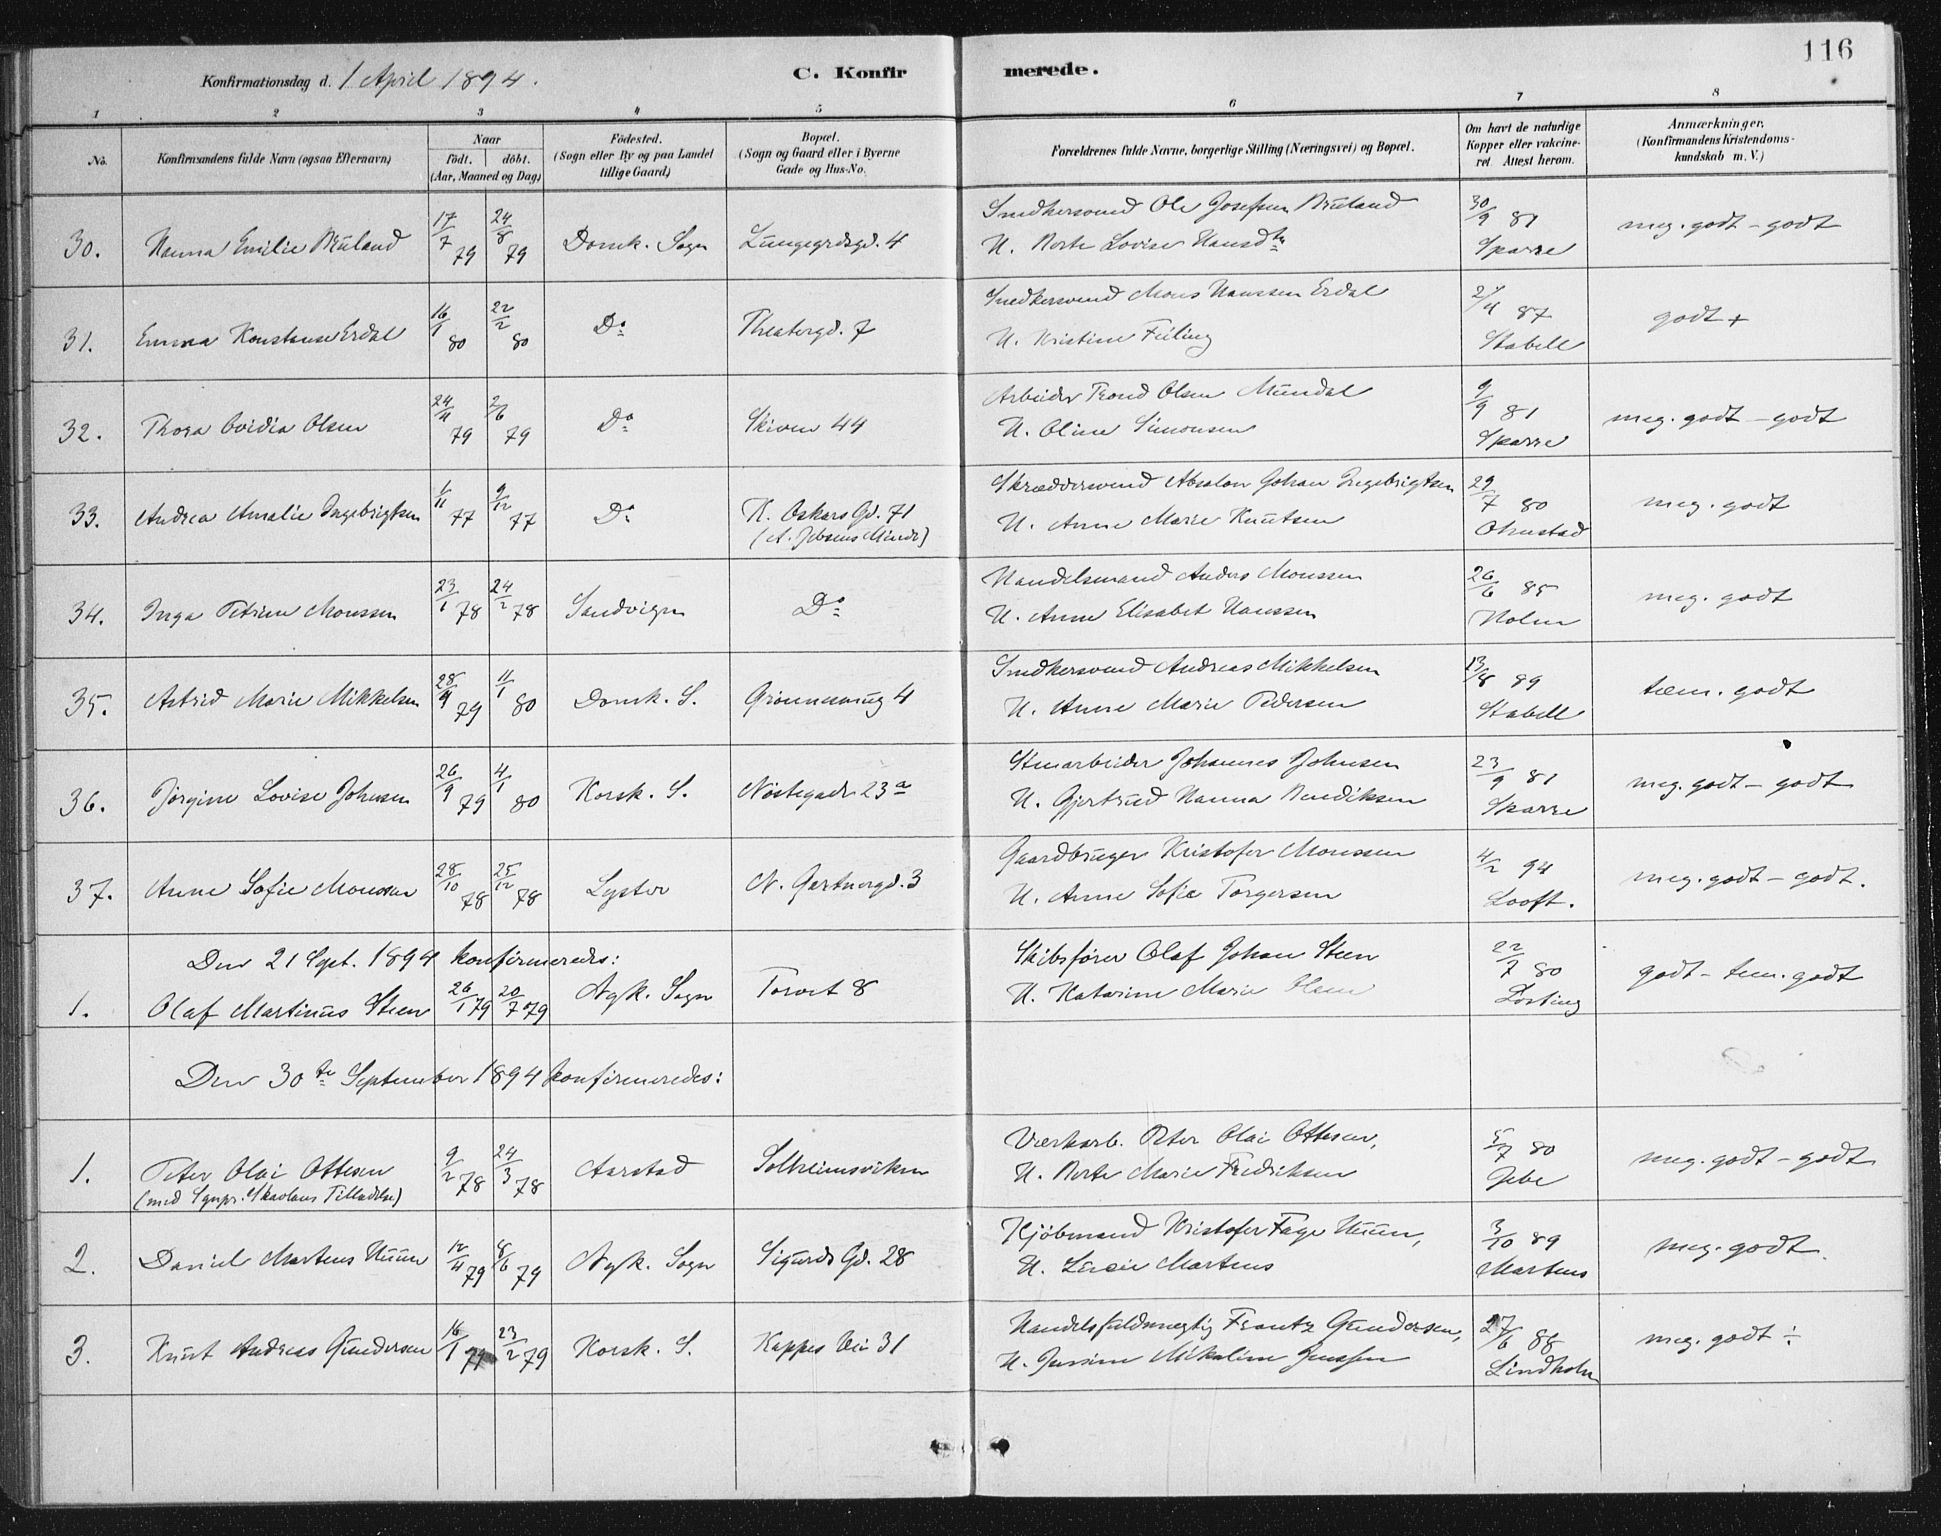 116
Konfirmationsdag d. 1 April 1894. C. Konfirmerede.
1 2 3 4 5 6 7 8
No. Konfirmandens fulde Navn (ogsaa Efternavn) Naar födt. döbt. (Aar, Maaned og Dag) Födested. (Sogn eller By og paa Landet tillige Gaard) Bopæl. (Sogn og Gaard eller i Byerne Gade og Hus-No. Forældrenes fulde Navne, borgerlige Stilling (Næringsvei) og Bopæl. Om havt de naturlige Kopper eller vakcineret. Attest herom. Anmærkninger. (Konfirmandens Kristendomskundskab m. V.)
30. Hanna Emilie Bruland 17/7 79 24/8 79 Domk. Sogn Lungegrdsgd. 4 Snedkersvend Ole Josefsen Bruland 30/9 81 meg. godt - godt
H. Borte Lovise Hansdtr Sparre
31. Emma Konstanse Erdal 16/1 80 22/2 80 Do Theatergd. 7 Snedkersvend Mons Hanssen Erdal 87 godt +
H. Kristine Feiling Stabell
32. Thora Ovidia Olsen 24/4 79 2/6 79 Do Skiven 44 Arbeider Trond Olsen Mundal 9/9 81 meg. godt - godt
H. Oline Simonsen Sparre
33. Andrea Amalie Ingebrigtsen 1/11 77 9/12 77 Do K. Oskars Gd. 71 Skræddersvend Absalon Johan Ingebrigtsen 29/7 80 meg. godt
(A. Jebsens Minde) H. Anne Marie Knutsen Ohnstad
34. Inga Petrine Monssen 23/1 78 24/2 78 Sandvigen Do Handelsmand Anders Monssen 26/6 85 meg. godt
H. Anne Elisabet Hanssen Holm
35. Astrid Marie Mikkelsen 28/9 79 11/1 80 Domk. S. Grönneveug 4 Snedkersvend Andreas Mikkelsen 13/8 89 tem. godt
H. Anne Marie Pedersen Stabell
36. Jörgine Lovise Johnsen 26/9 79 4/1 80 Korsk. S. Nöstegade 23 a Stenarbeider Johannes Johnsen 23/9 81 meg. godt - godt
H. Gjertrud Hanna Bendiksen Sparre
37. Anne Sofie Monssen 28/10 78 25/12 78 Lyster N. Gartnergd. 3 Gaardbruger Kristofer Monssen 4/2 94 meg. godt - godt.
H. Anne Sofie Torgersen Looft.
Den 21 Sept. 1894 konfirmeredes: Skibsförer Olaf Johan Steen 22/7 80
1. Olaf Martinus Steen 26/1 79 20/7 79 Nyk. Sogn Torvet 8 H. Katarine Marie Olsen Lösting godt - tem. godt
Den 30te September 1894 konfirmeredes:
1. Peter Olai Ottesen 9/2 78 24/3 78 Aarstad Solheimsviken Værkarb. Peter Olai Ottesen, 5/7 80 meg. godt - godt
(med Sgnpr. Skavlans Tilladelse) H. Borte Marie Fredriksen Gebe
2. Daniel Martens Huun 12/4 79 8/6 79 Nyk. Sogn Sigurds Gd. 28 Kjöbmand Kristofer Fage Huun, 3/10 89 meg. godt.
H. Lucie Martens Martens
3. Knut Andreas Gundersen 16/1 79 23/2 79 Korsk. S. Kappes Vei 31 Handelsfuldmegtig Frantz Gundersen, 27/6 86 meg. godt ÷
H. Jensine Mikaline Jenssen Lindholm